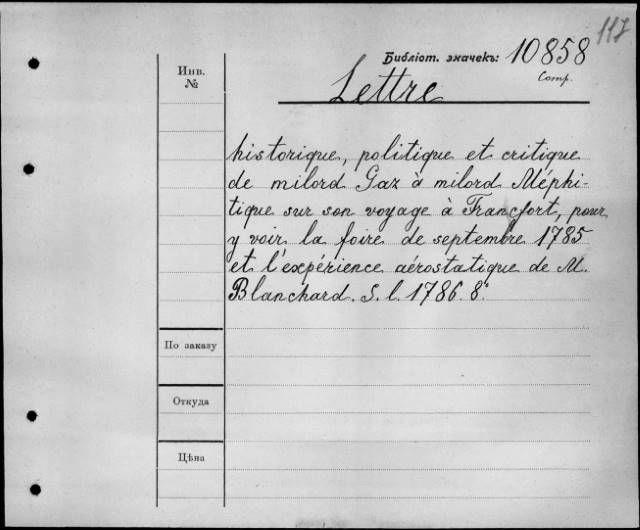 117
Библіот. значекъ: 10858
Comp.
Инв.
№
Lettre
historique, politique et critique
de milord Gaz à milord Méphi-
tique sur son voyage à Francfort, pour
y voir la foire de septembre 1785
et l'expérience aérostatique de M.
Blanchard. S. l. 1786. 8°.
По заказу
Откуда
Цѣна